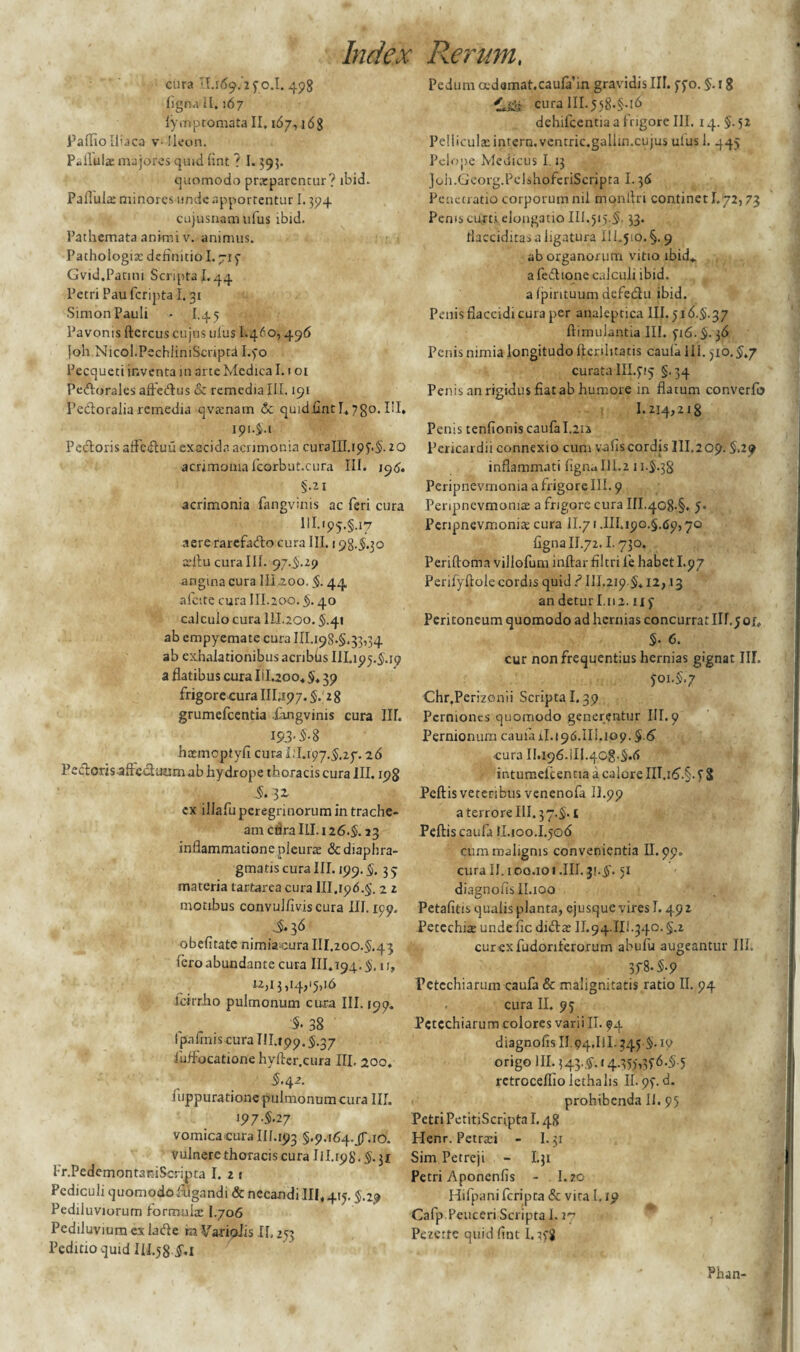 Index Rerum.
cura II.169.250.I. 498
signa II. 167
symptomata II. 167, 168
Passio Iliaca v. Ileon.
Passulæ majores quid sint ? I. 393.
quomodo præparentur? ibid.
Passulæ minores unde apportentur I. 394
cujusnam usus ibid.
Pathemata animi v. animus.
Pathologiæ definitio I. 715
Gvid.Patini Scripta I. 44
Petri Pau scripta I. 31
Simon Pauli - I.45
Pavonis stercus cujus usus I.460, 496
Joh.Nicol.PechliniScripta I.50
Pecqueti inventa in arte Medica I. 101
Pectorales affectus & remedia III. 191
Pectoralia remedia qvænam & quid sint I. 780. III.
191.§.1
Pectoris affectuū exacida acrimonia curaIII.195.§. 20
acrimonia scorbut.cura III. 196.
§.21
acrimonia sangvinis ac seri cura
III.195.§.17
aere rarefacto cura III. 198.§.30
æstu cura III. 97.§.29
angina cura III.200. §. 44
ascite cura III.200. §. 40
calculo cura III.200. §.41
ab empyemate cura III.198.§.33,34
ab exhalationibus acribus III.195.§.19
a flatibus cura III.200. §. 39
frigore cura III.197. §. 28
grumescentia sangvinis cura III.
193. §.8
hæmoptysi cura III.197.§.25. 26
Pectoris affectuum ab hydrope thoracis cura III. 198
§. 32
ex illasu peregrinorum in trache-
am cura III. 126.§. 23
inflammatione pleuræ & diaphra-
gmatis cura III. 199. §. 35
materia tartarea cura III.196.§. 22
motibus convulsivis cura III. 199.
§. 36
obesitate nimia cura III.200.§.43
sero abundante cura III.194. §. 11,
12,13,14,15,16
scirrho pulmonum cura III. 199.
§. 38
spasmis cura III.199. §.37
suffocatione hyster.cura III. 200.
§.42.
suppuratione pulmonum cura III.
197.§.27
vomica cura III.193 §.9.164.§.10.
vulnere thoracis cura III.198. §. 31
Fr.PedemontaniScripta I. 21
Pediculi quomodo fugandi & necandi III. 415. §.29
Pediluviorum formulæ I.706
Pediluvium ex lacte in Variolis II. 253
Peditio quid III.58 §.1
Pedum œdemat.causa in gravidis III. 550. §. 18
cura III.558.§.16
dehiscentia a frigore III. 14. §. 52
Pelliculæ intern.ventric.gallin.cujus usus I. 445
Pelope Medicus I. 13
Joh.Georg.PelshoferiScripta I. 36
Penetratio corporum nil monstri continet I. 72, 73
Penis curti elongatio III.515.§. 33.
flacciditas a ligatura III.510. §. 9
ab organorum vitio ibid.
a sectione calculi ibid.
a spirituum defectu ibid.
Penis flaccidi cura per analeptica III. 516.§.37
stimulantia III. 516. §. 36
Penis nimia longitudo sterilitatis causa III. 510. §.7
curata III.515 §. 34
Penis an rigidus fiat ab humore in flatum converso
I.214,218
Penis tensionis causa I.212
Pericardii connexio cum vasis cordis III.209. §.29
inflammati signa III.211.§.38
Peripnevmonia a frigore III. 9
Peripnevmoniæ a frigore cura III.408.§. 5.
Peripnevmoniæ cura II.71.III.190.§.69, 70
signa II.72. I. 730.
Peristoma villosum instar filtri se habet I.97
Perisystole cordis quid? III.219 §. 12, 13
an detur I.112. 115
Peritoneum quomodo ad hernias concurrat III.501.
§. 6.
cur non frequentius hernias gignat III.
501.§.7
Chr.Perizonii Scripta I. 39
Perniones quomodo generentur III. 9
Pernionum causa II.196.III.109. §.6
cura II.196.III.408.§.6
intumescentia a calore III.16.§. 58
Pestis veteribus venenosa II.99
a terrore III. 37.§. 1
Pestis causa II.100.I.506
cum malignis convenientia II. 99.
cura II. 100.101 .III. 31.§. 51
diagnosis II.100
Petasitis qualis planta, ejusque vires I. 492
Petechiæ unde sic dictæ II.94.III.340. §.2
cur ex sudoriferorum abusu augeantur III.
358.§.9
Petechiarum causa & malignitatis ratio II. 94
cura II. 95
Petechiarum colores varii II. 94
diagnosis II. 94.III. 345 §. 19
origo III. 343.§. 14.355,356.§ 5
retrocessio lethalis II. 95. d.
prohibenda II. 95
PetriPetitiScripta I. 48
Henr. Petræi - I. 31
Sim Petreji - I.31
Petri Aponensis - I.20
Hispani scripta & vita I. 19
Casp.Peuceri Scripta I. 27
Pezette quid sint I. 358
Phan-